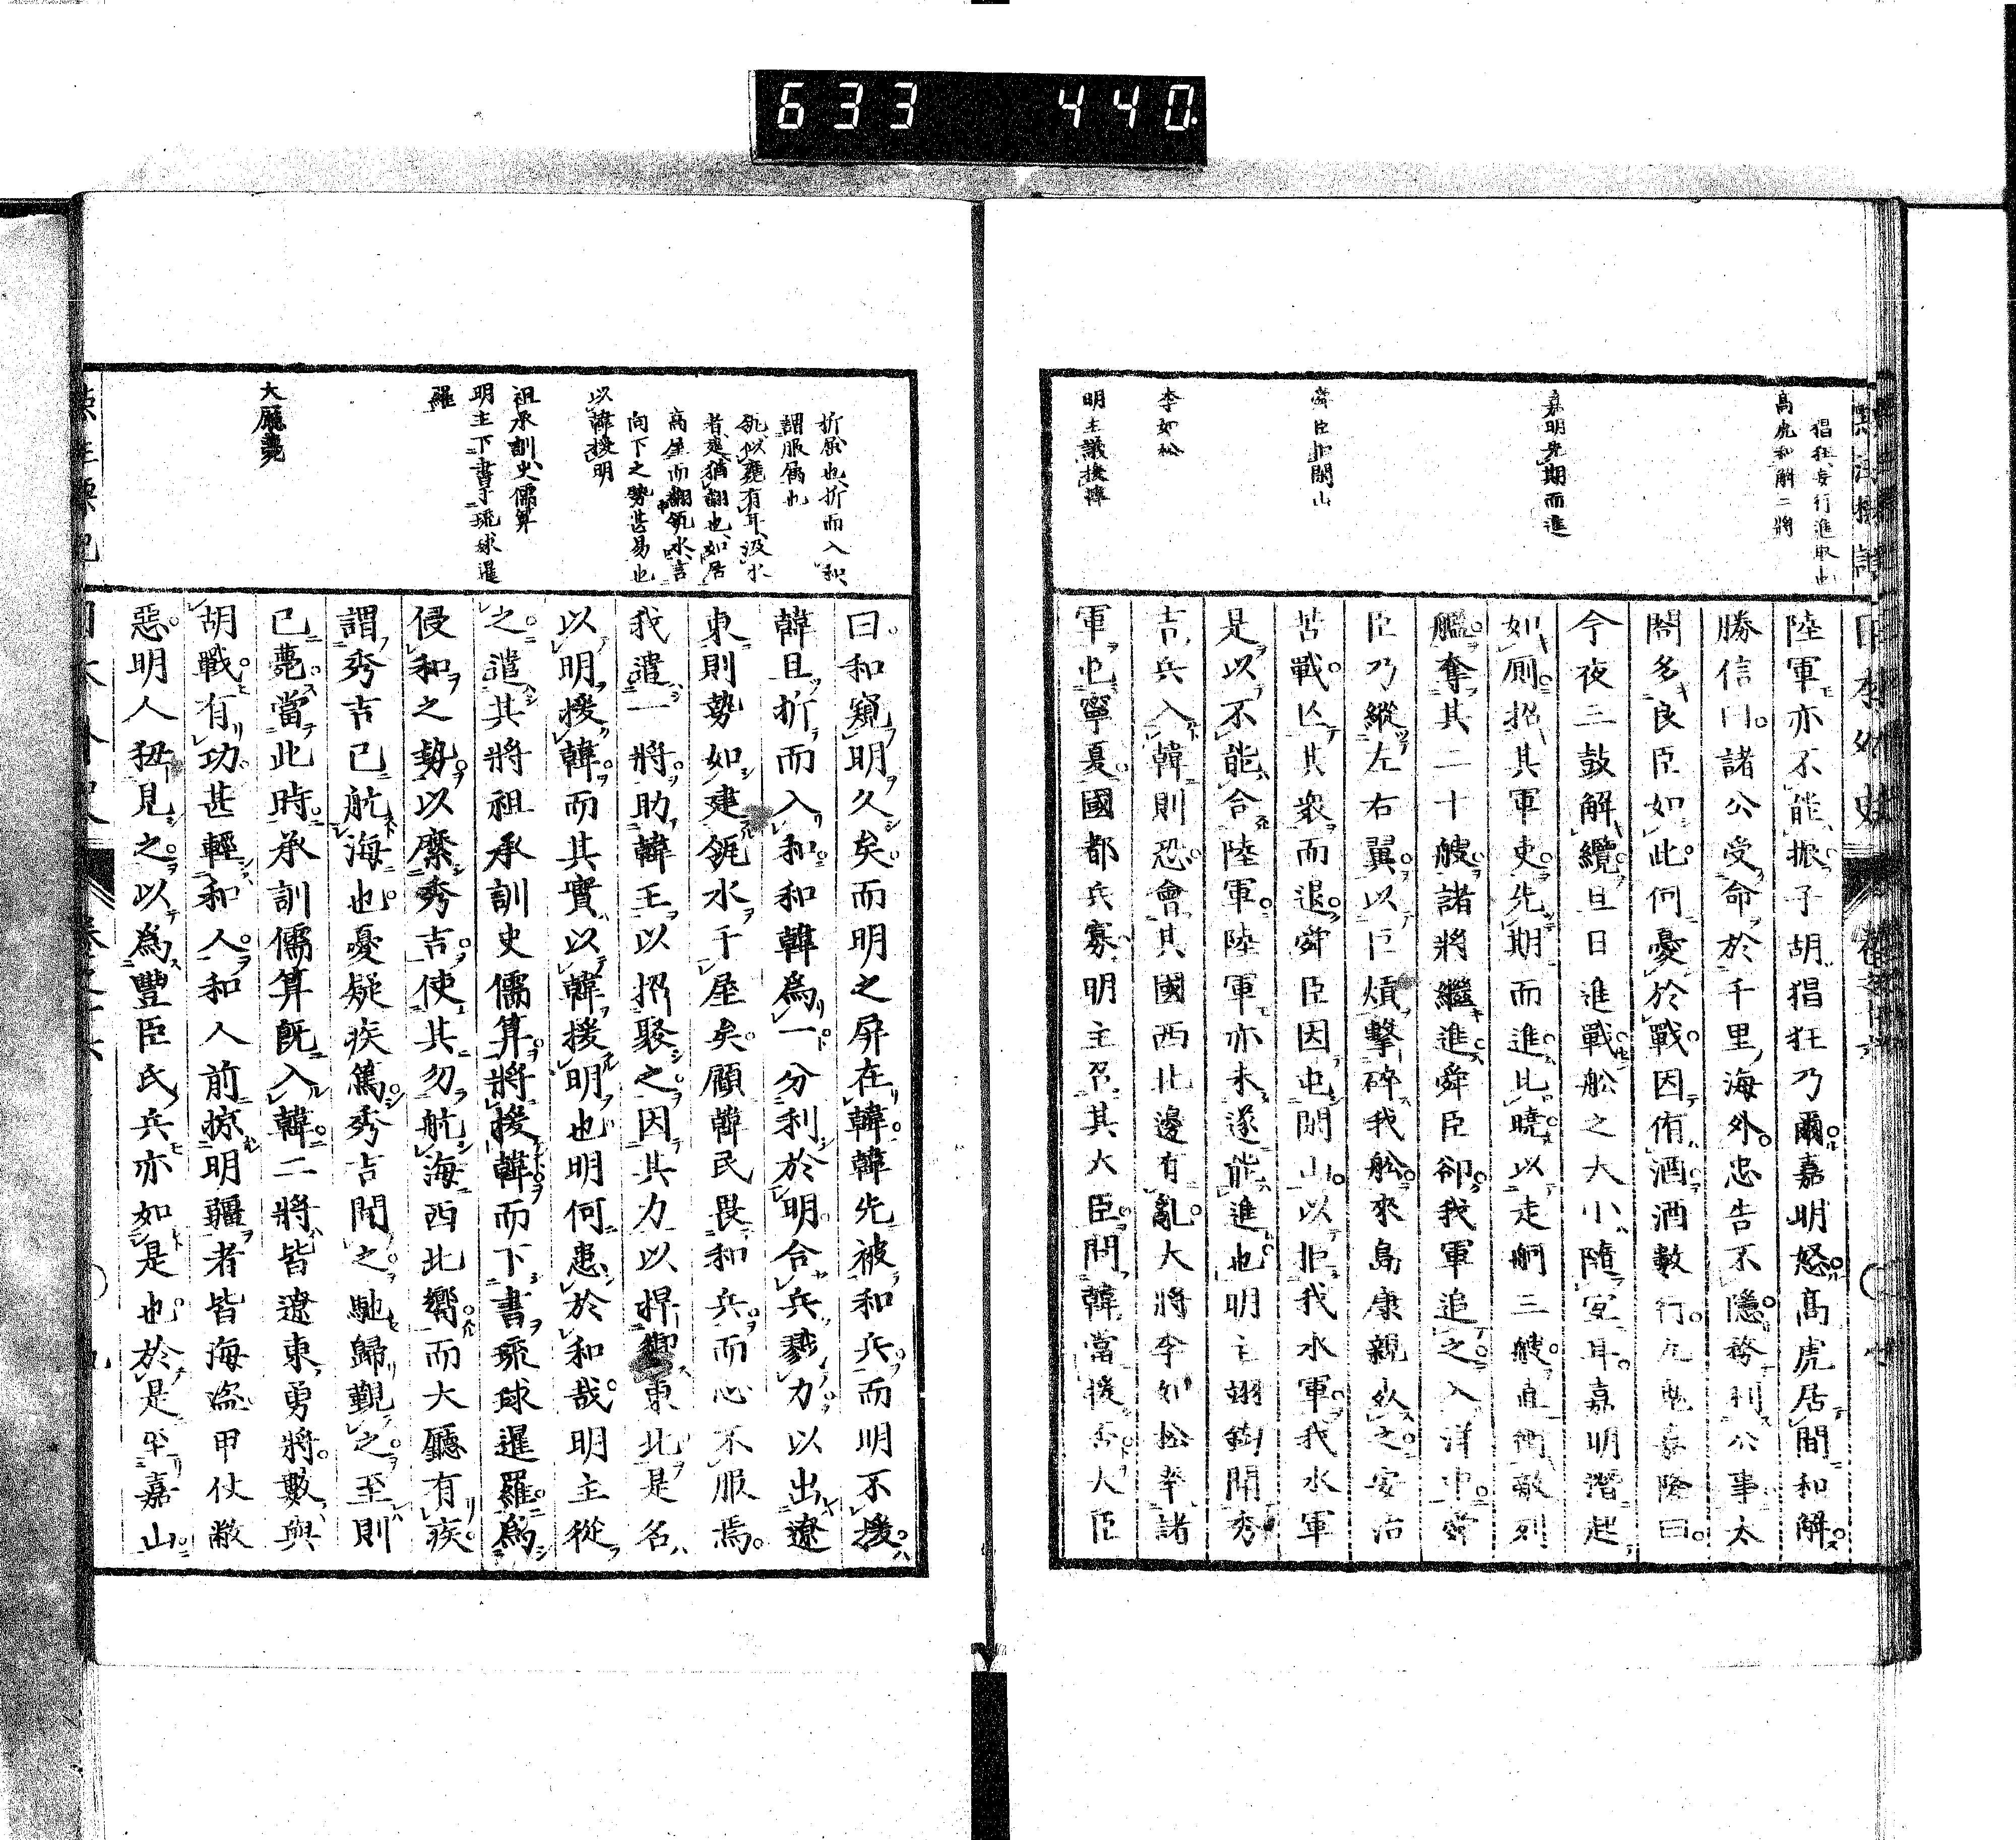 633 440
猖狂妄行進取也
高虎和解二將
嘉明先期而進
舜臣拒閑山
李如松
明主議援韓
陸軍亦不能振子胡猖狂乃爾嘉明怒高虎居間和解
勝信曰諸公受命於千里海外忠告不隱務利公事太
閤多良臣如此何憂於戰因侑酒酒數行九鬼嘉隆曰
今夜三鼓解纜旦日進戰舩之大小隨宜耳嘉明潛起
如厠招其軍吏先期而進比曉以走舸三艘直衝敵列
艦奪其二十艘諸將繼進舜臣卻我軍追之入洋中舜
臣乃縱左右翼以巨熕擊碎我舩來島康親死之安治
苦戰亡其衆而退舜臣因屯閑山以拒我水軍我水軍
是以不能合陸軍陸軍亦未遂能進也明主翊鈞聞秀
吉兵入韓則恐會其國西北邊有亂大將李如松率諸
軍屯寧夏國都兵寡明主召其大臣問韓當援否大臣
折屈也折而入和
謂服屬也
瓴似甕有耳汲水
者建猶翻也如居
高屋而翻瓴水言
向下之勢甚易也
以韓援明
祖承訓史儒算
明主下書于琉球暹
羅
大廳薨
曰和窺明久矣而明之屏在韓韓先被和兵而明不援
韓且折而入和和韓爲一分利於明合兵戮力以出遼
東則勢如建瓴水千屋矣顧韓民畏和兵而心不服焉
我遣一將助韓王以招聚之因其力以捍禦東北是名
以明援韓而其實以韓援明也明何患於和哉明主從
之遣其將祖承訓史儒算將援韓而下書琉球暹羅爲
侵和之勢以縻秀吉使其勿航海西北嚮而大廳有疾
謂秀吉已航海也憂疑疾篤秀吉聞之馳歸覲之至則
已薨當此時承訓儒算旣入韓二將皆遼東勇將數與
胡戰有功甚輕和人和人前掠明疆者皆海盜甲仗敝
惡明人狃見之以爲豐臣氏兵亦如是也於是平嘉山